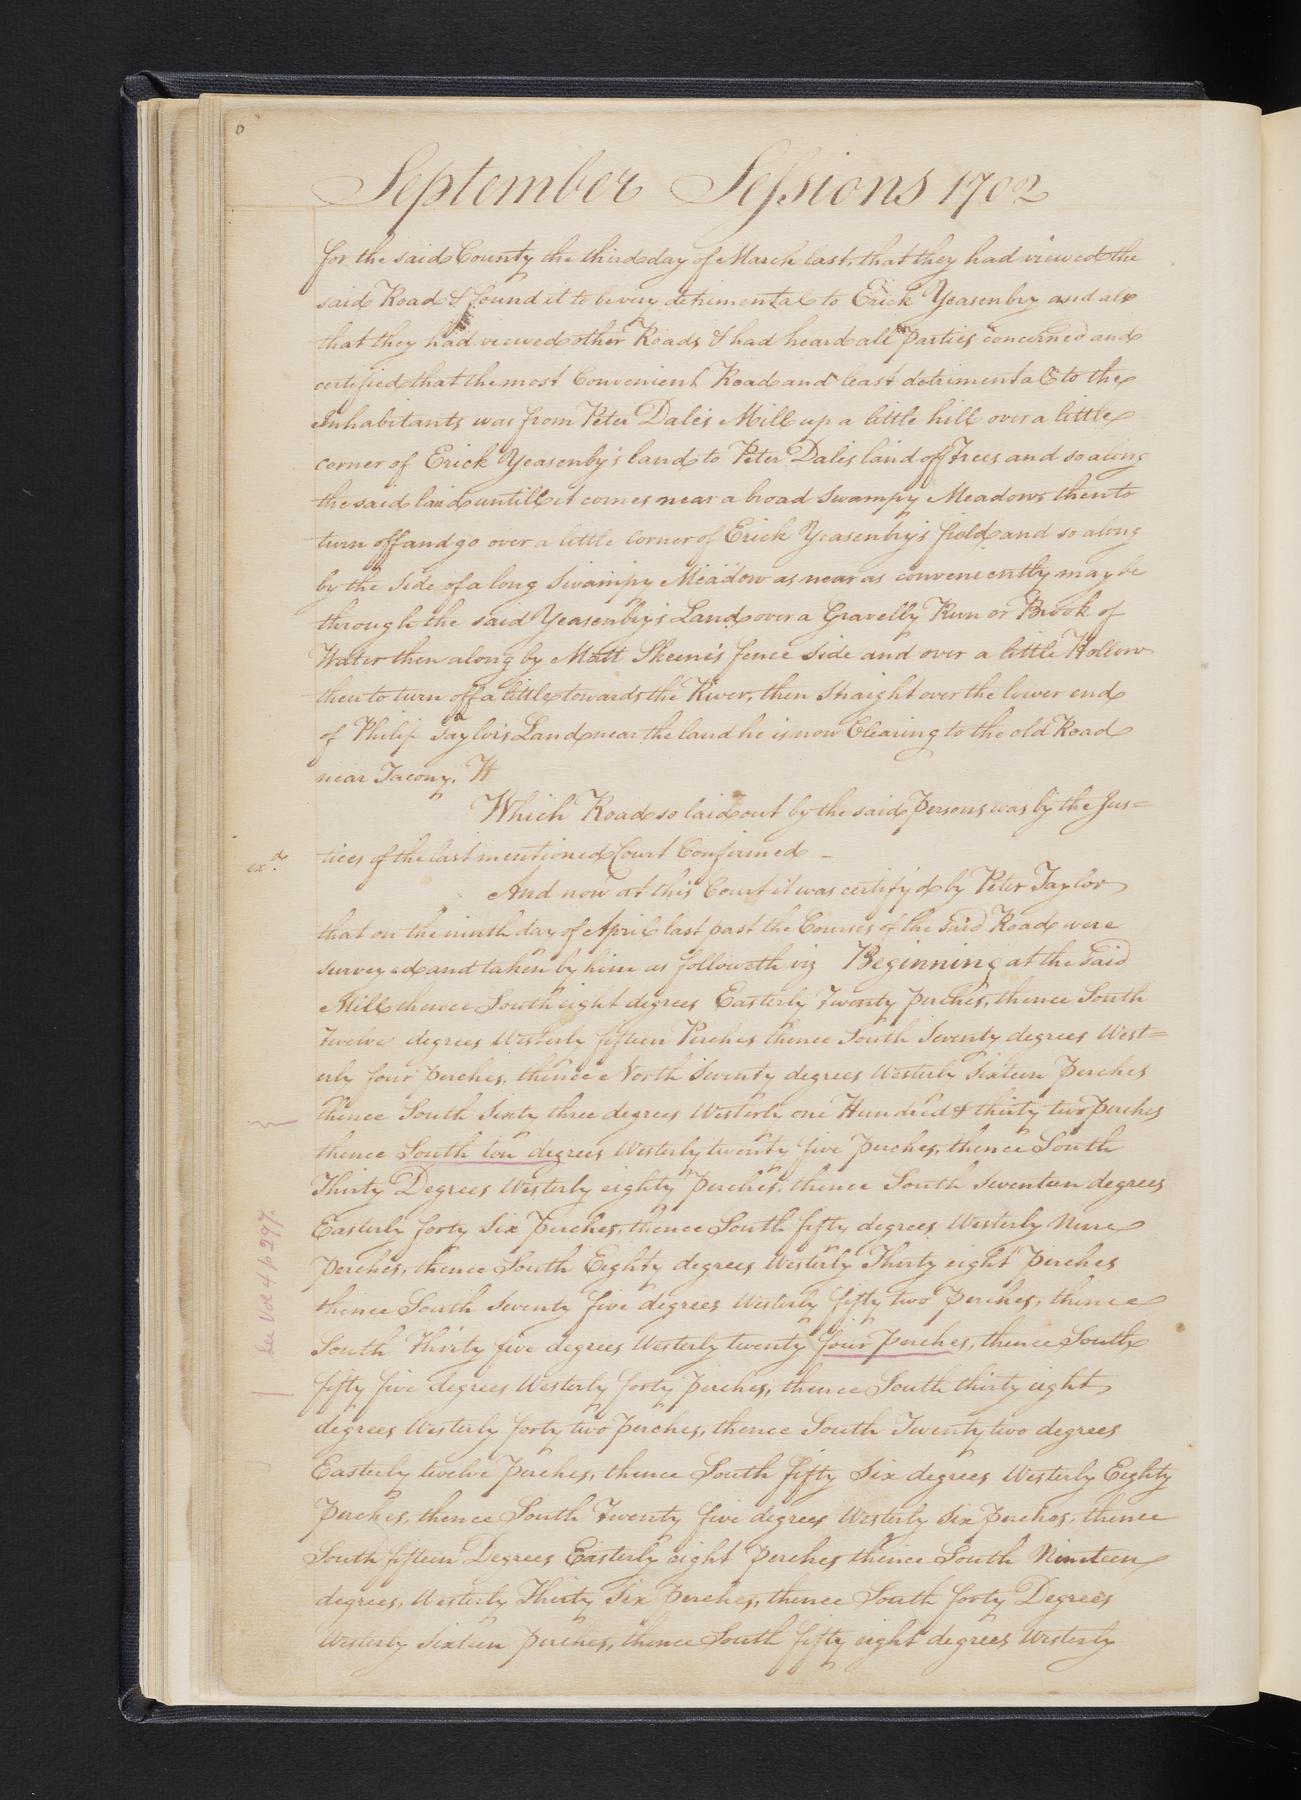 6
September Sessions 1702
for the said County the third day of March last, that they had viewed the
said Road & found it to be very detrimental to Erick Yeasenby and also
that they had viewed other Roads & had heard all Parties concerned and
certified that the most Convenient Road and least detrimental to the
Inhabitants was from Peter Dale's Mill up a little hill over a little
corner of Erick Yeasenby's land to Peter Dale's land of Trees and so along
the said land untill it comes near a broad Swampy Meadow then to
turn off and go over a little Corner of Erick Yeasenby's field and so along
by the Side of a long Swampy Meadow as near as conveniently may be
through the said Yeasenby's Land over a Gravelly Run or Brook of
Water then along by Matt Skeen's fence Side and over a little Hollow
then to turn off a little towards the River, then Straight over the lower end
of Philip Taylor's Land near the land he is now Clearing to the old Road
near Tacony.
Which Road so laid out by the said Persons was by the Jus=
exd. tices of the last mentioned Court Confirmed _
And now at this Court it was certifyd by Peter Taylor
that on the ninth day of April last past the Courses of the said Road were
surveyed and taken by him as followeth viz Beginning at the Said
Mill thence South eight degrees Easterly Twenty perches, thence South
Twelve degrees Westerly fifteen Perches thence South Seventy degrees West=
erly four perches, thence North Seventy degrees Westerly Sixteen Perches
thence South Sixty three degrees Westerly one Hundred & thirty two perches
thence South ten degrees Westerly twenty five Perches, thence South
Thirty Degrees Westerly eighty Perches, thence South Seventeen degrees
Easterly forty Six Perches, thence South fifty degrees Westerly Nine
Perches, thence South Eighty degrees Westerly Thirty eight Perches
thence South Seventy five degrees Westerly fifty two Perches, thence
South Thirty five degrees Westerly twenty four Perches, thence South
fifty five degrees Westerly forty Perches, thence South thirty eight
degrees Westerly forty two Perches, thence South Twenty two degrees
Easterly twelve Perches, thence South fifty Six degrees Westerly Eighty
Perches, thence South Twenty five degrees Westerly Six perches, thence
South fifteen Degrees Easterly eight Perches thence South Nineteen
degrees, Westerly Thirty Six Perches, thence South forty Degrees
Westerly Sixteen Perches, thence South fifty eight degrees Westerly
See Vol 4 p 297.